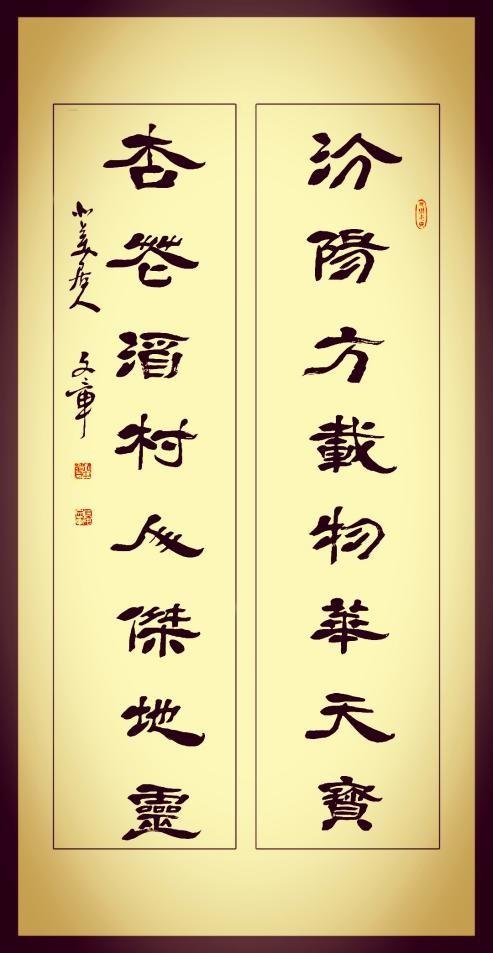 汾陽方載物華天寶
杏花酒村人傑地靈
小美居人 文章